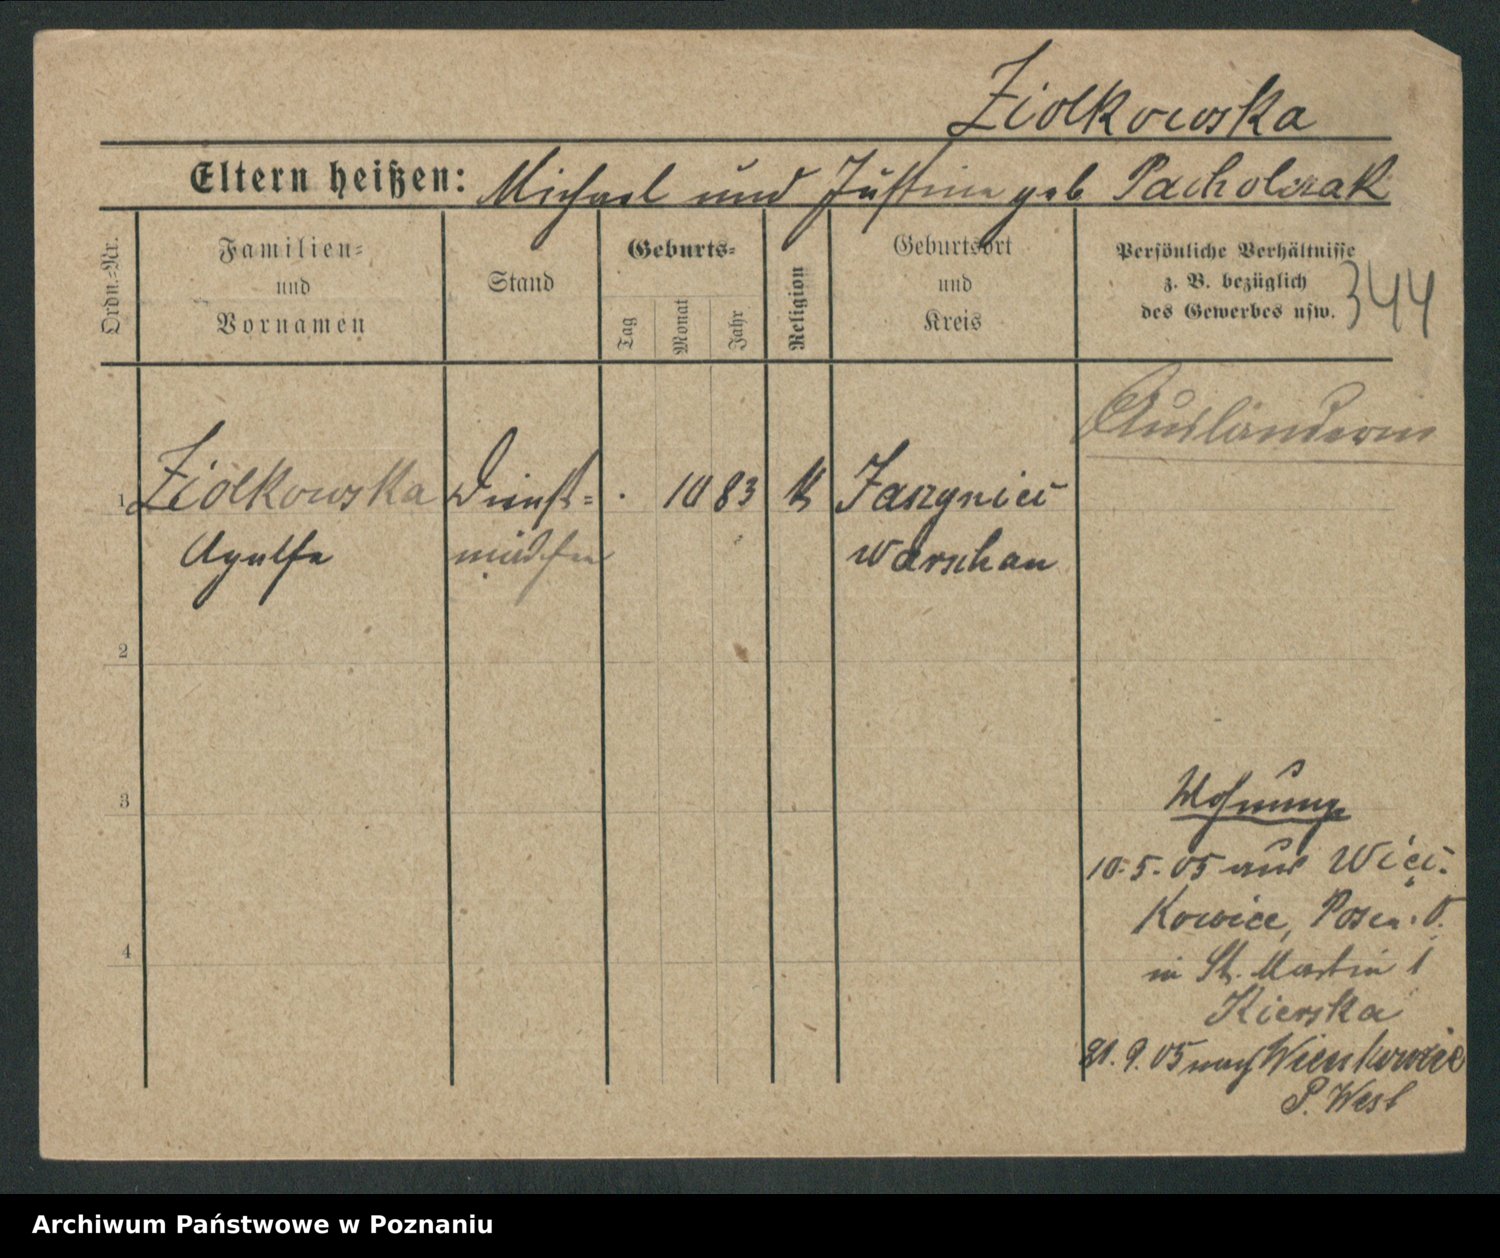 Ziolkowska
Eltern heißen: Michael und Justine geb Pacholczak
Ordn.=Nr.
Familien=
und
Vornamen
Stand
Geburts=
Tag
Monat
Jahr
Religion
Geburtsort
und
Kreis
Persönliche Verhältnisse
z. B. bezüglich
des Gewerbes usw.
344
Ausländerin
1 Ziolkowska Dienst= . 10 83 K
Agathe mädchen Warschau
2
3
4
Wohnung
10.5.05 aus Więc.
kowice, Posen. O.
in St. Martin 1
Kierska
21.9.05 nach Wienkowice
P. West
Archiwum Państwowe w Poznaniu